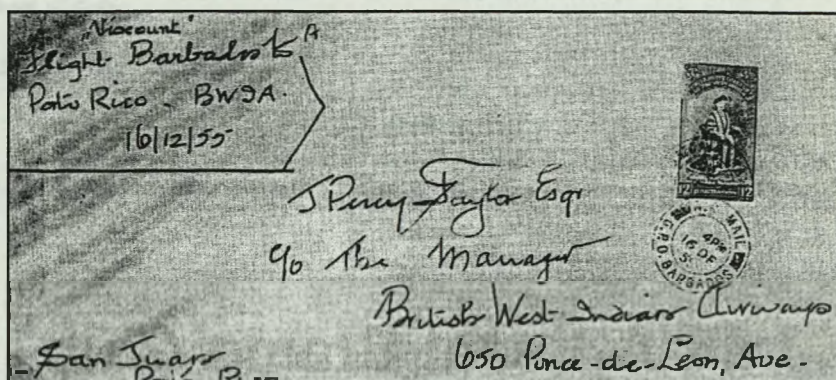 "Viscount"
Flight Barbados to
Porto Rico - BWIA.
16/12/55
J Percy Taylor Esqr
c/o The Manager
British West Indian Airways
650 Ponce-de-Leon, Ave-
San Juan
Porto Rico
12 12
AIR MAIL
4PM
16 DE
5
G.P.O. BARBADOS